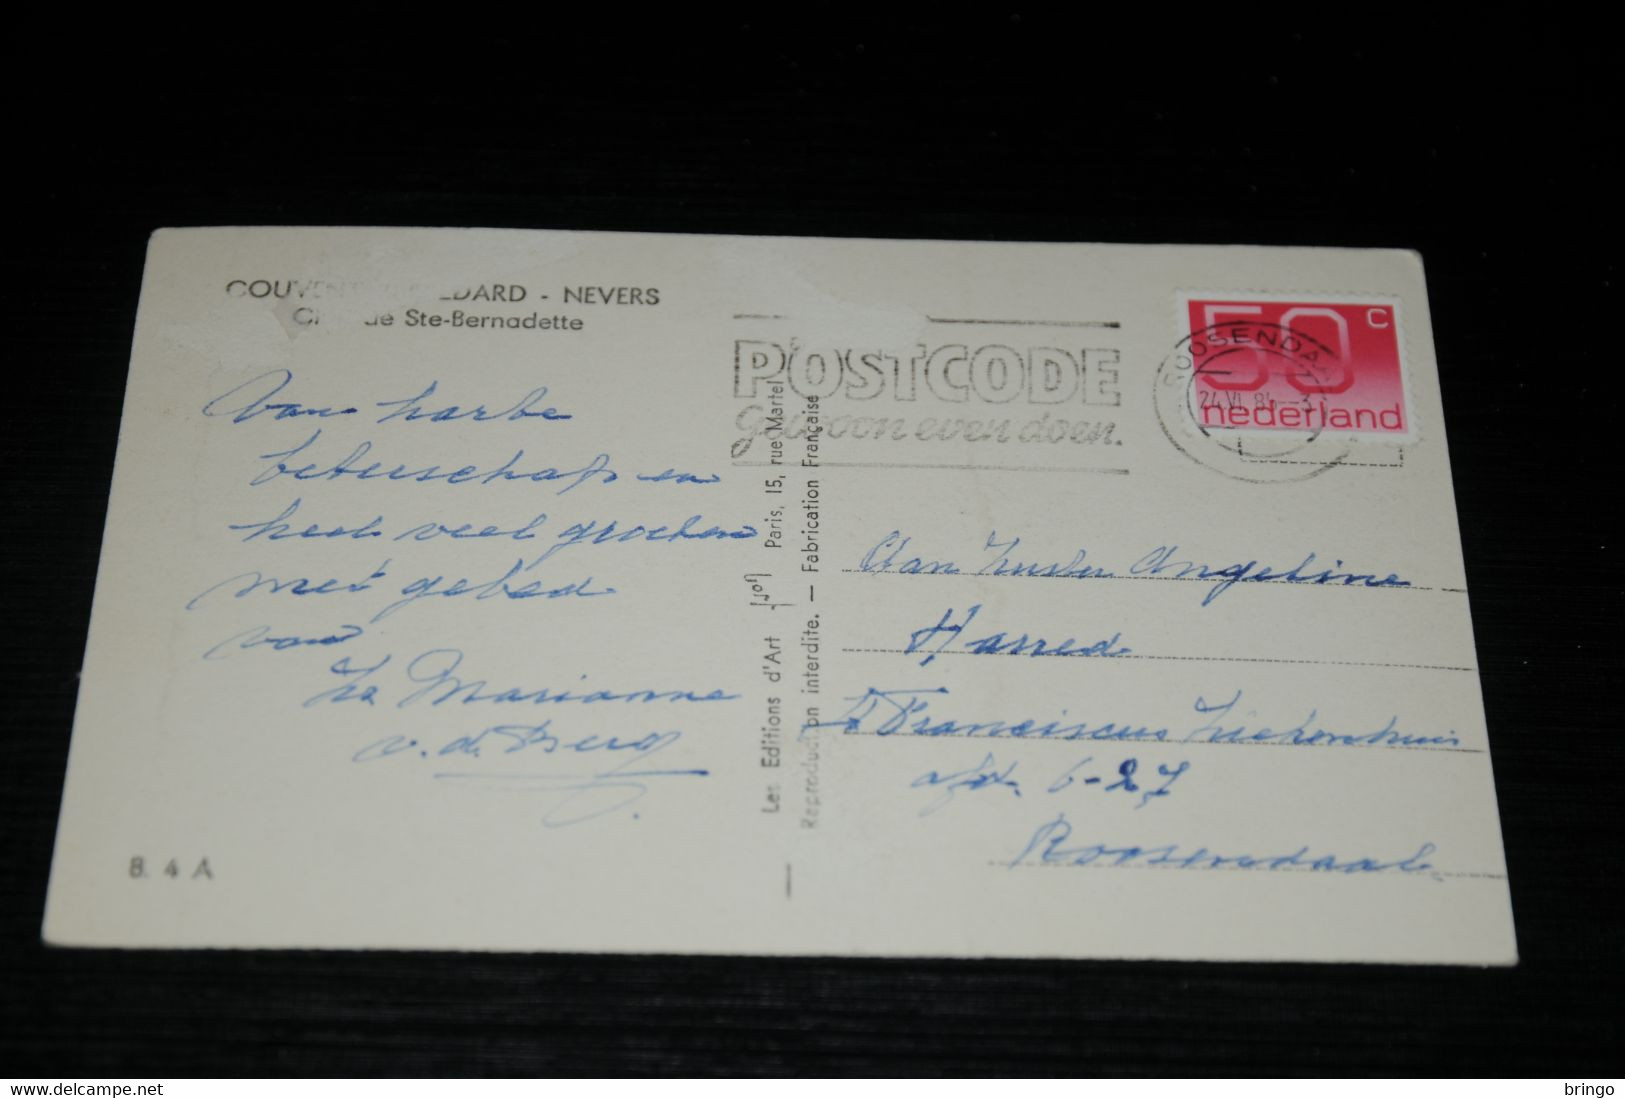 COUVENT ST-GILDARD - NEVERS
de Ste-Bernadette
Van harte
beterschap en
heel veel groeten
met gebed
van
Zr Marianne
v. d. Berg
B. 4 A
Les Editions d'Art Paris, 15, rue Martel
Reproduction interdite. — Fabrication Française
POSTCODE
gewoon even doen.
ROOSENDAAL
24.VI.84
50 c
nederland
Aan Zuster Angeline
Harred
St Franciscus Ziekenhuis
afd. 6-27
Roosendaal
bringo